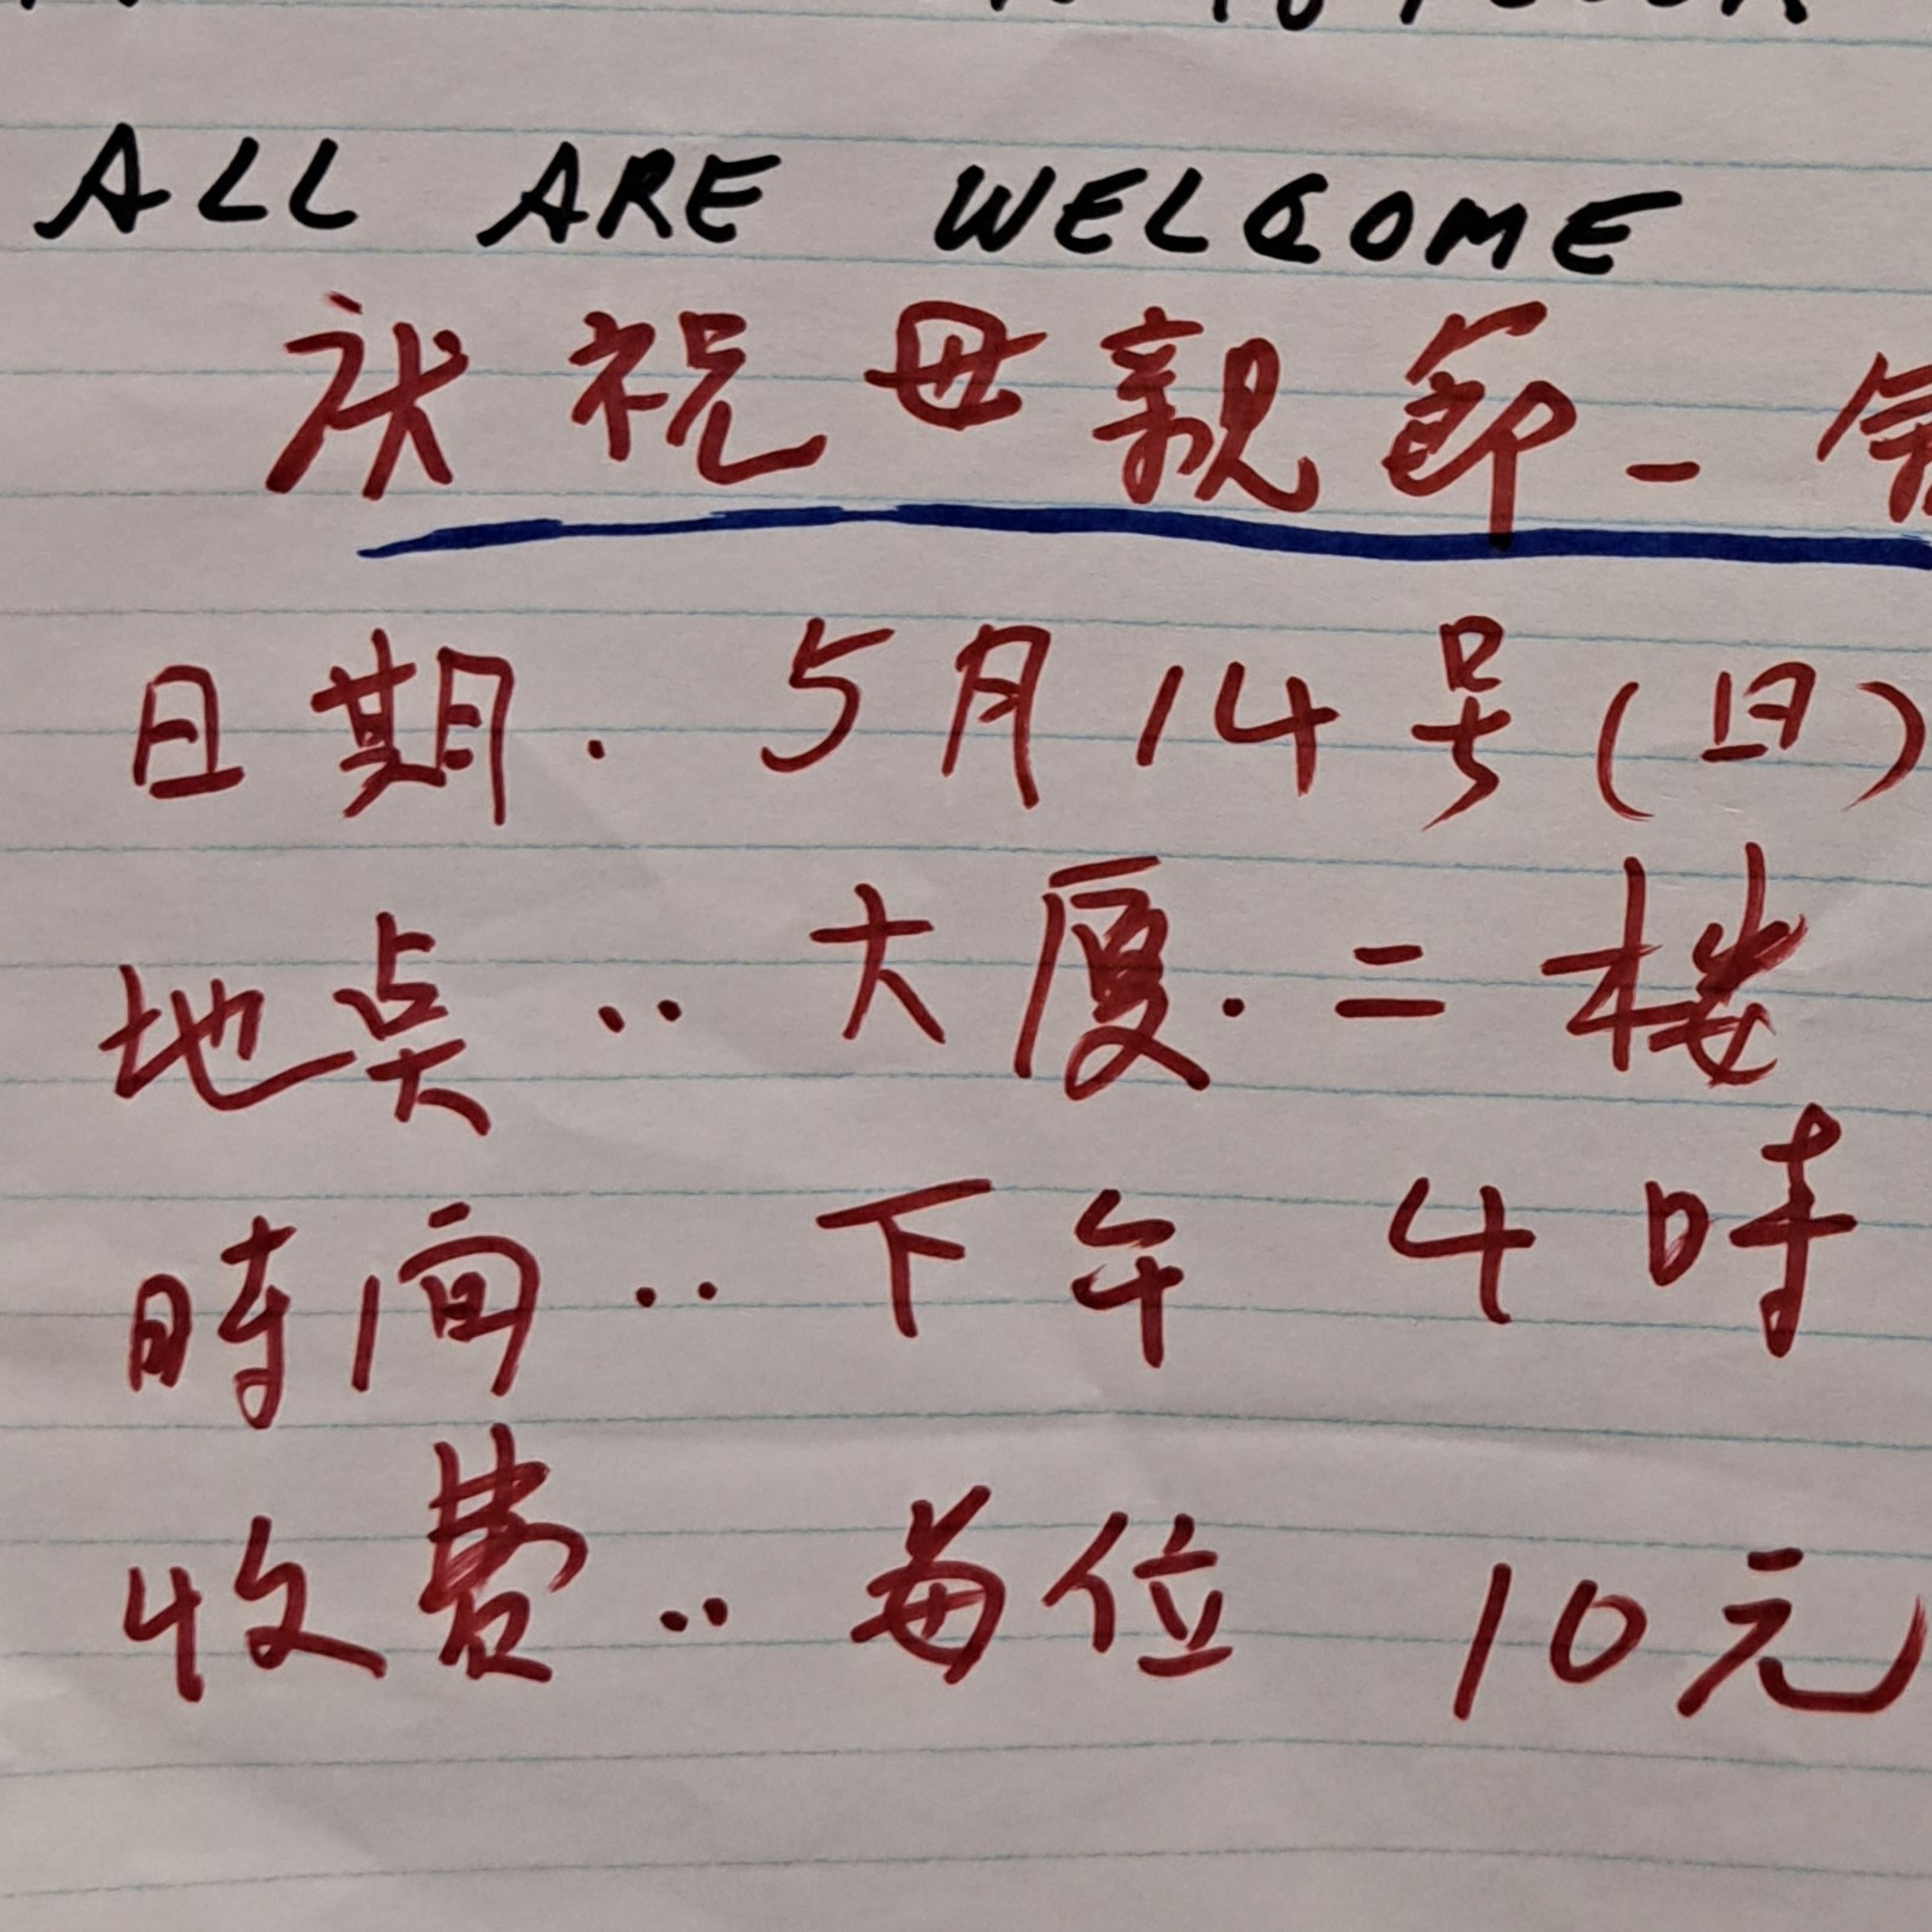 ALL ARE WELCOME
庆祝母親節-
日期. 5月14号(日)
地点:大厦.二楼
時间:下午 4时
收费:每位 10元